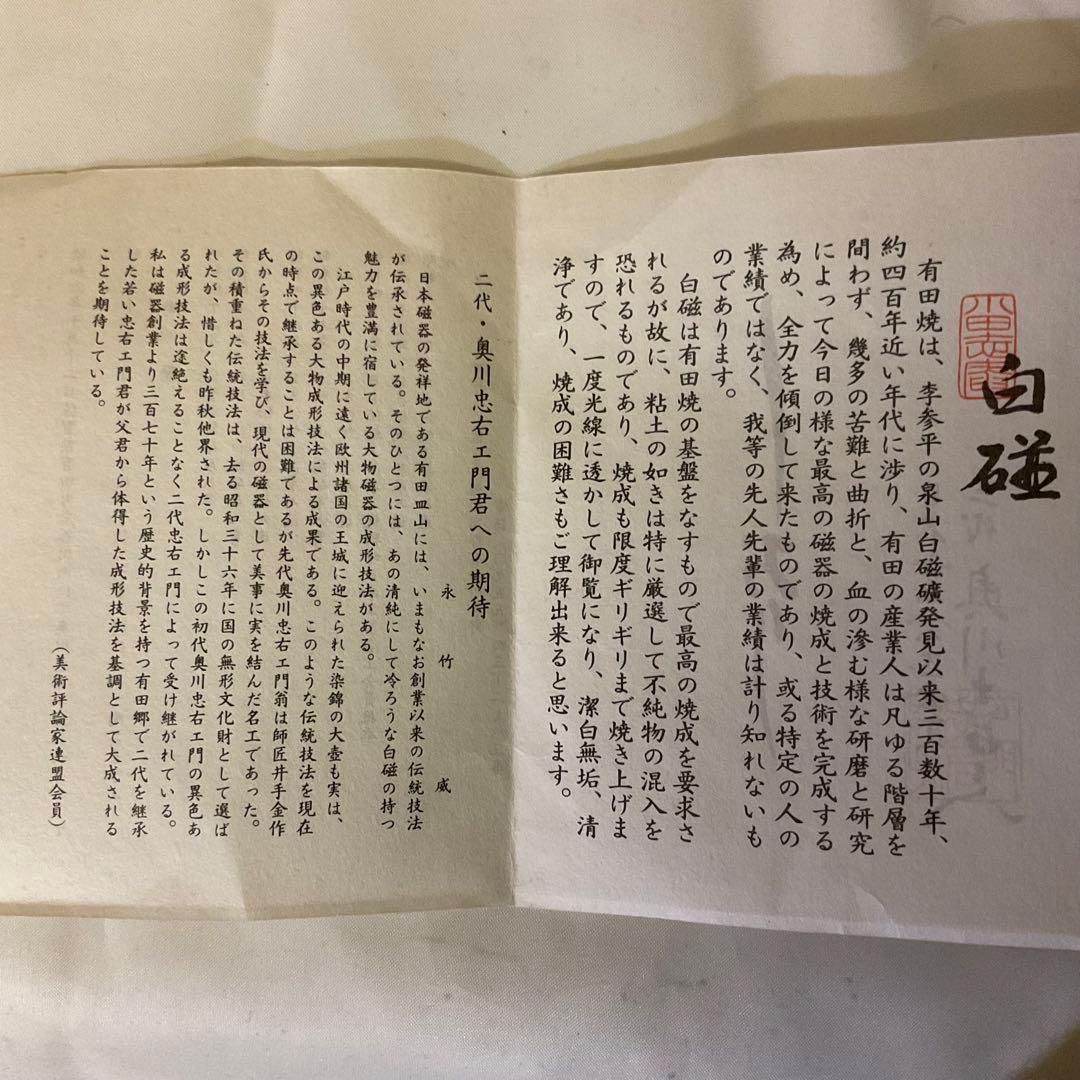 白磁
有田焼は、李参平の泉山白磁礦発見以来三百数十年、
約四百年近い年代に渉り、有田の産業人は凡ゆる階層を
間わず、幾多の苦難と曲折と、血の滲む様な研磨と研究
によって今日の様な最高の磁器の焼成と技術を完成する
為め、全力を傾倒して来たものであり、或る特定の人の
業績ではなく、我等の先人先輩の業績は計り知れないも
のであります。
白磁は有田焼の基盤をなすもので最高の焼成を要求さ
れるが故に、粘土の如きは特に厳選して不純物の混入を
恐れるものであり、焼成も限度ギリギリまで焼き上げま
すので、一度光線に透かして御覧になり、潔白無垢、清
浄であり、焼成の困難さもご理解出来ると思います。
二代・奥川忠右エ門君への期待
永竹威
日本磁器の発祥地である有田皿山には、いまもなお創業以来の伝統技法
が伝承されている。そのひとつには、あの清純にして冷ろうな白磁の持つ
魅力を豊満に宿している大物磁器の成形技法がある。
江戸時代の中期に遠く欧州諸国の王城に迎えられた染錦の大壺も実は、
この異色ある大物成形技法による成果である。このような伝統技法を現在
の時点で継承することは困難であるが先代奥川忠右エ門翁は師匠井手金作
氏からその技法を学び、現代の磁器として美事に実を結んだ名工であった。
その積重ねた伝統技法は、去る昭和三十六年に国の無形文化財として選ば
れたが、惜しくも昨秋他界された。しかしこの初代奥川忠右エ門の異色あ
る成形技法は途絶えることなく二代忠右エ門によって受け継がれている。
私は磁器創業より三百七十年という歴史的背景を持つ有田郷で二代を継承
した若い忠右エ門君が父君から体得した成形技法を基調として大成される
ことを期待している。
(美術評論家連盟会員)